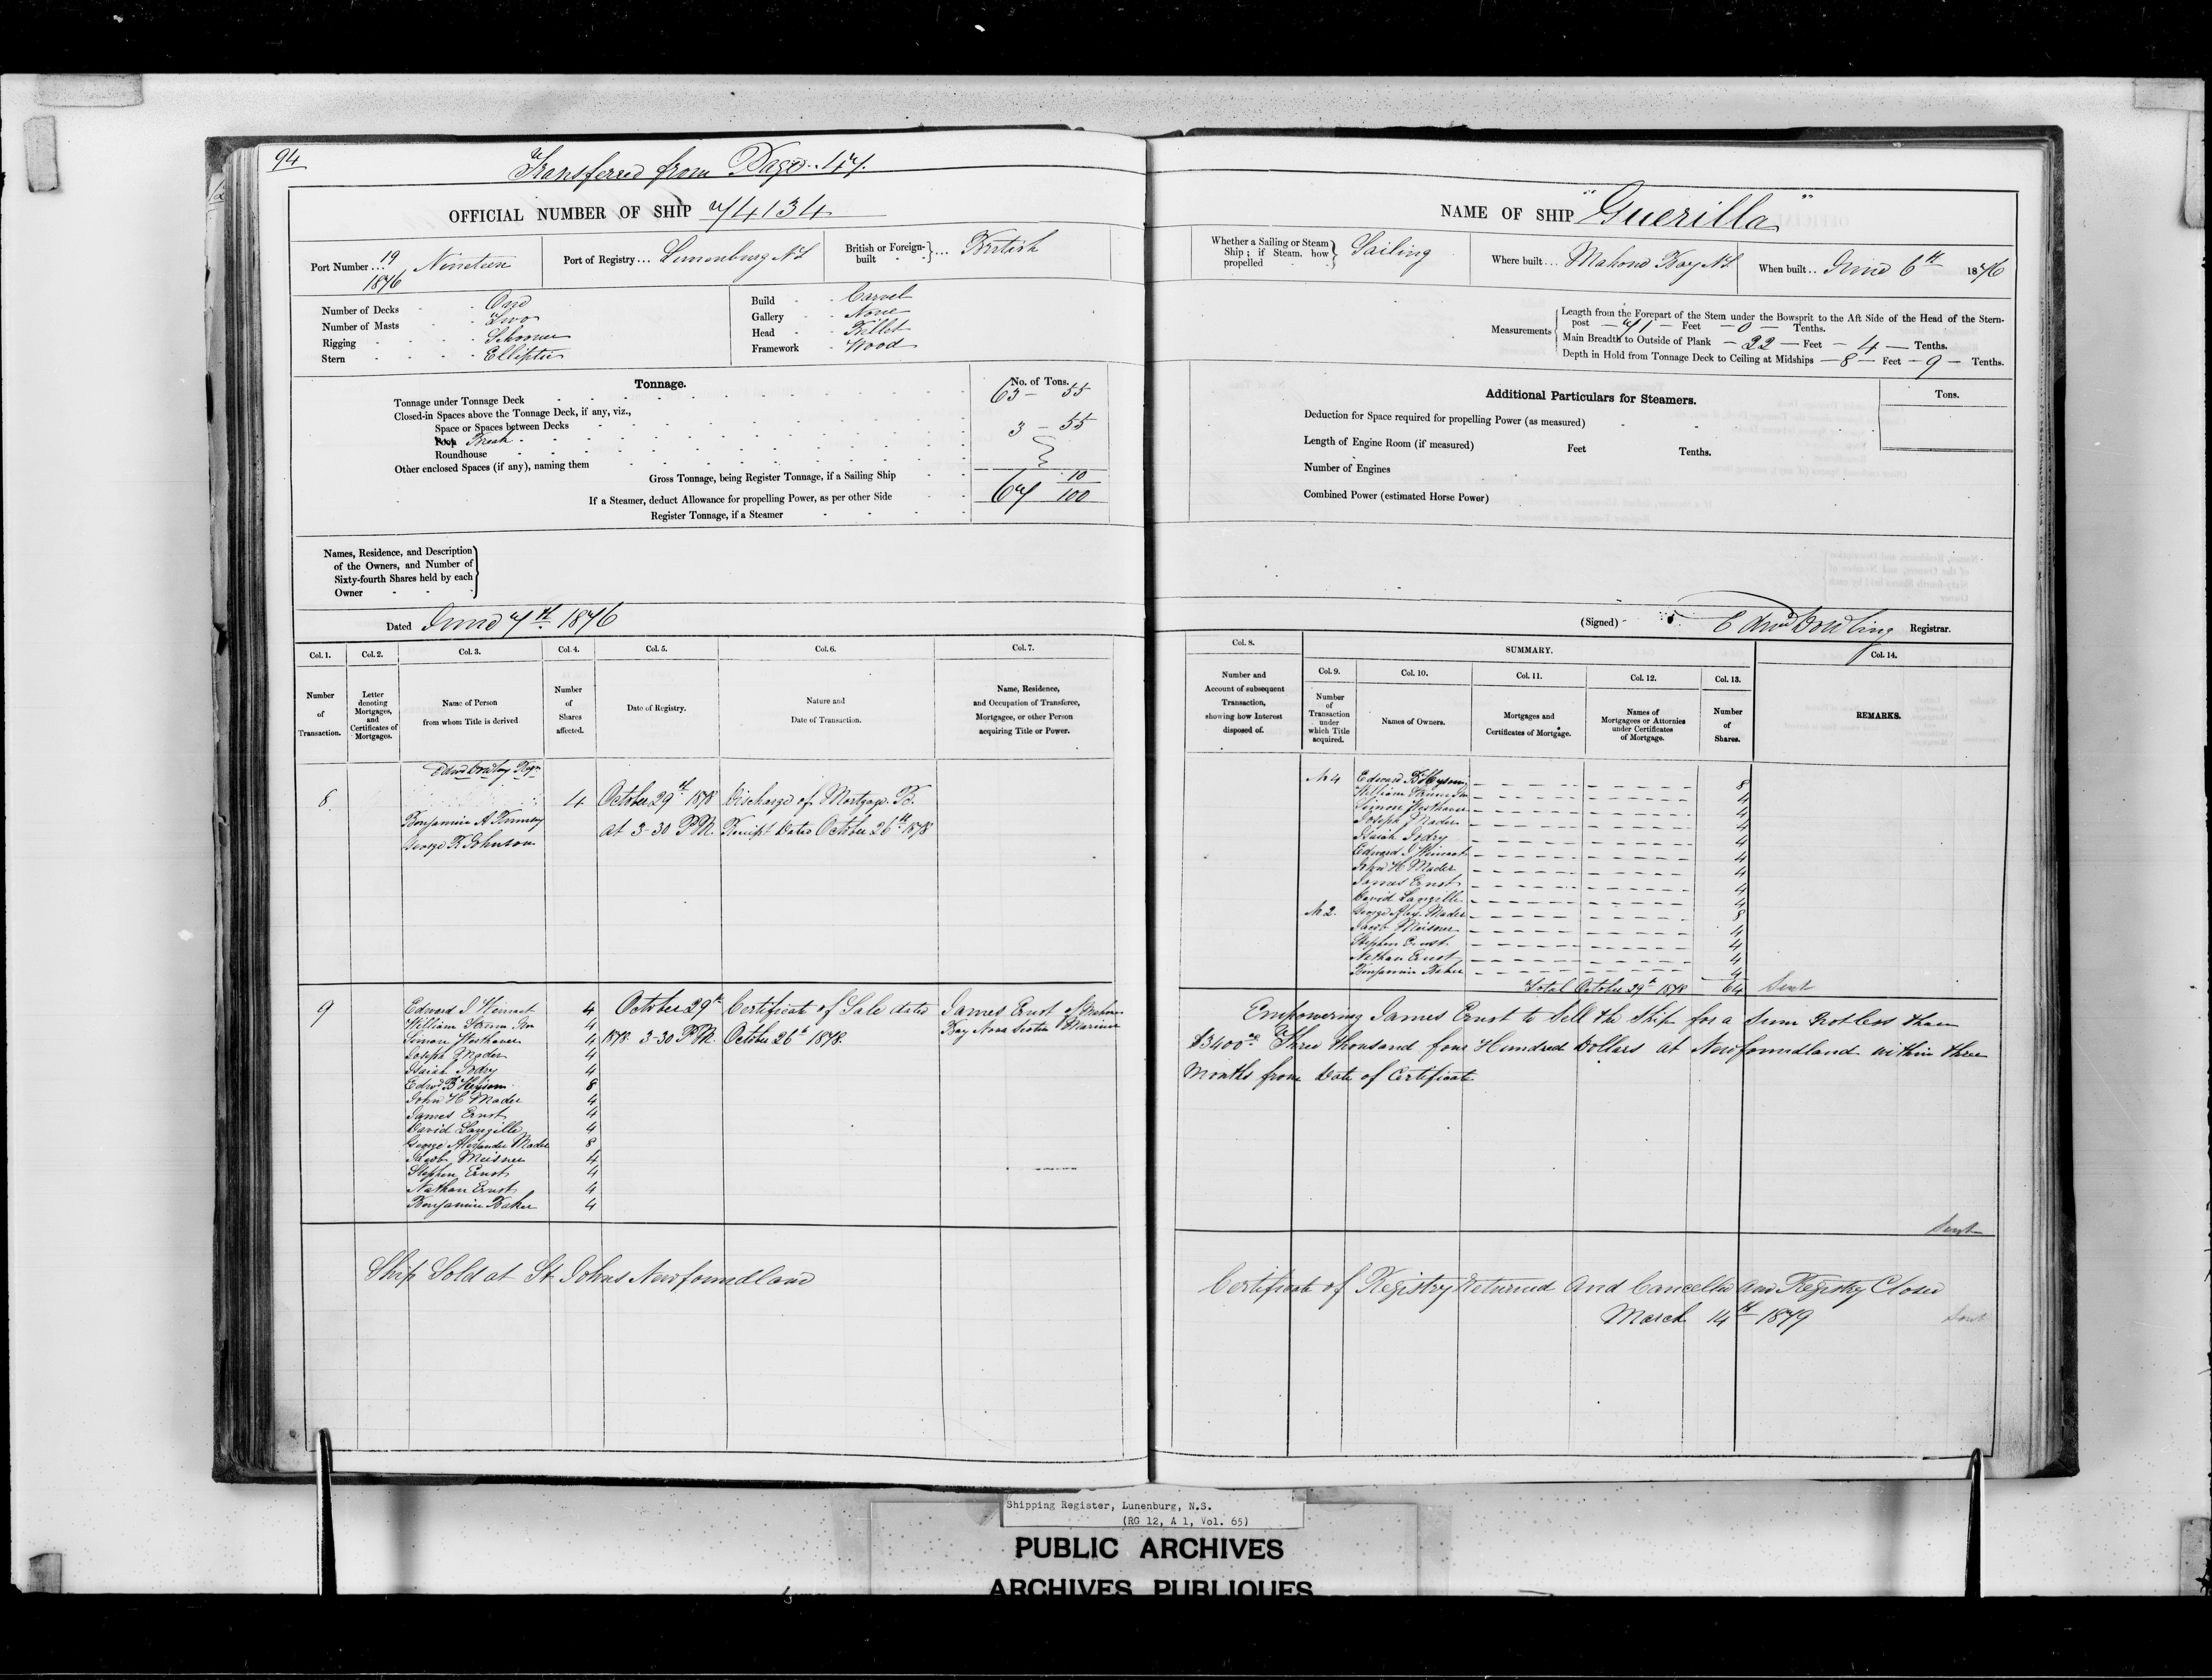 94
Transferred from Page 147.
OFFICIAL NUMBER OF SHIP 74134
Port Number ... 19 1876 Nineteen
Port of Registry ... Lunenburg N S
British or Foreign-built ... British
Number of Decks - One
Number of Masts - Two
Rigging - Schooner
Stern - Elliptic
Build - Carvel
Gallery - None
Head - Billet
Framework - Wood
Tonnage.
No. of Tons.
Tonnage under Tonnage Deck 63 - 55
Closed-in Spaces above the Tonnage Deck, if any, viz.,
Space or Spaces between Decks
Poop Break 3 - 55
Roundhouse
Other enclosed Spaces (if any), naming them
Gross Tonnage, being Register Tonnage, if a Sailing Ship
67 10/100
If a Steamer, deduct Allowance for propelling Power, as per other Side
Register Tonnage, if a Steamer
Names, Residence, and Description
of the Owners, and Number of
Sixty-fourth Shares held by each
Owner
Dated June 7th 1876
Col. 1. Col. 2. Col. 3. Col. 4. Col. 5. Col. 6. Col. 7.
Number of Transaction.
Letter denoting Mortgages, and Certificates of Mortgages.
Name of Person from whom Title is derived
Number of Shares affected.
Date of Registry.
Nature and Date of Transaction.
Name, Residence, and Occupation of Transferee, Mortgagee, or other Person acquiring Title or Power.
8 4 October 29th 1878 Discharge of Mortgage B.
Benjamin A at 3-30 P.M. Receipt Dated October 26th 1878
George R Johnson
9 Edward J 4 October 29th Certificate of Sale dated James Ernst of Mahone
William 4
Simon Westhaver 4 1878 3-30 P.M. October 26th 1878. Bay Nova Scotia Mariner
Joseph Mader 4
Isaiah Jodry 4
Edwd B 8
John H Mader 4
James Ernst 4
David Langille 4
George Alexander Mader 8
Jacob Meisner 4
Stephen Ernst 4
Nathan Ernst 4
Benjamin Baker 4
Ship Sold at St Johns Newfoundland
NAME OF SHIP "Guerilla"
Whether a Sailing or Steam Ship; if Steam, how propelled Sailing
Where built ... Mahone Bay N.S.
When built .. June 6th 1876
Measurements
Length from the Forepart of the Stem under the Bowsprit to the Aft Side of the Head of the Stern-
post - 71 - Feet - 0 - Tenths.
Main Breadth to Outside of Plank - 22 - Feet - 4 - Tenths.
Depth in Hold from Tonnage Deck to Ceiling at Midships - 8 - Feet - 9 - Tenths.
Additional Particulars for Steamers.
Tons.
Deduction for Space required for propelling Power (as measured)
Length of Engine Room (if measured) Feet Tenths.
Number of Engines
Combined Power (estimated Horse Power)
(Signed) Edwd Dowling Registrar.
Col. 8. SUMMARY. Col. 14.
Col. 9. Col. 10. Col. 11. Col. 12. Col. 13.
Number and Account of subsequent Transaction, showing how Interest disposed of.
Number of Transaction under which Title acquired.
Names of Owners.
Mortgages and Certificates of Mortgage.
Names of Mortgagees or Attornies under Certificates of Mortgage.
Number of Shares.
REMARKS.
No 4 Edward B 8
William 4
Simon Westhaver 4
Joseph Mader 4
Isaiah Jodry 4
Edward J 4
John H Mader 4
James Ernst 4
David Langille 4
No 2. George Alex. Mader 8
Jacob Meisner 4
Stephen Ernst 4
Nathan Ernst 4
Benjamin Baker 4
Total October 29th 1878 64 Sent
Empowering James Ernst to Sell the Ship for a Sum not less than
$3400.00 Three thousand four Hundred Dollars at Newfoundland within three
Months from Date of Certificate
Sent
Certificate of Registry returned and Cancelled and Registry Closed
March 14th 1879
Sent
Shipping Register, Lunenburg, N.S.
(RG 12, A 1, Vol. 65)
PUBLIC ARCHIVES
ARCHIVES PUBLIQUES